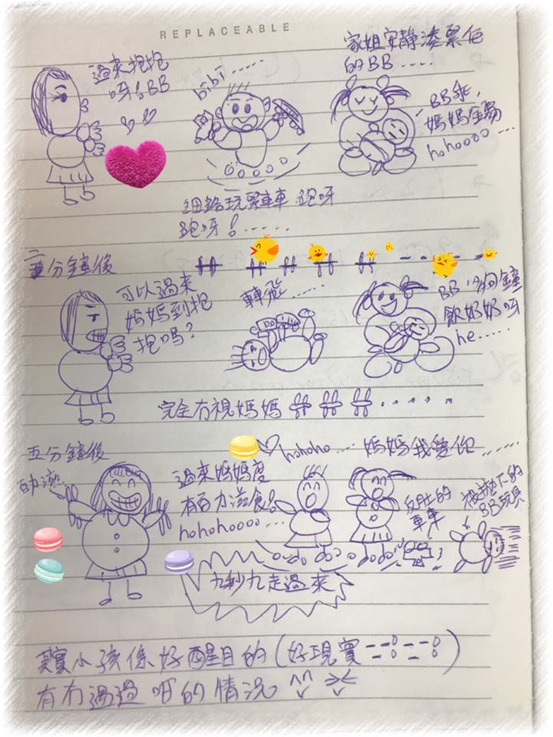 REPLACEABLE
過來抱抱
呀！BB
bibi.....
家姐安靜湊緊佢
的BB.....
BB乖，
媽媽
hohoooo...
細路玩緊車車 跑呀
跑呀！......
三分鐘後
可以過來
媽媽到抱
抱嗎？
轉從...
BB，
飲奶奶呀
he.....
完全冇視媽媽
五分鐘後
hohoho... 媽媽我愛你......
過來媽媽度
有百力滋食！
hohohoooo...
反肚的
車車
被拋下的
BB玩具
九秒九走過來
小孩係好醒目的(好現實)
有冇遇過咁的情況